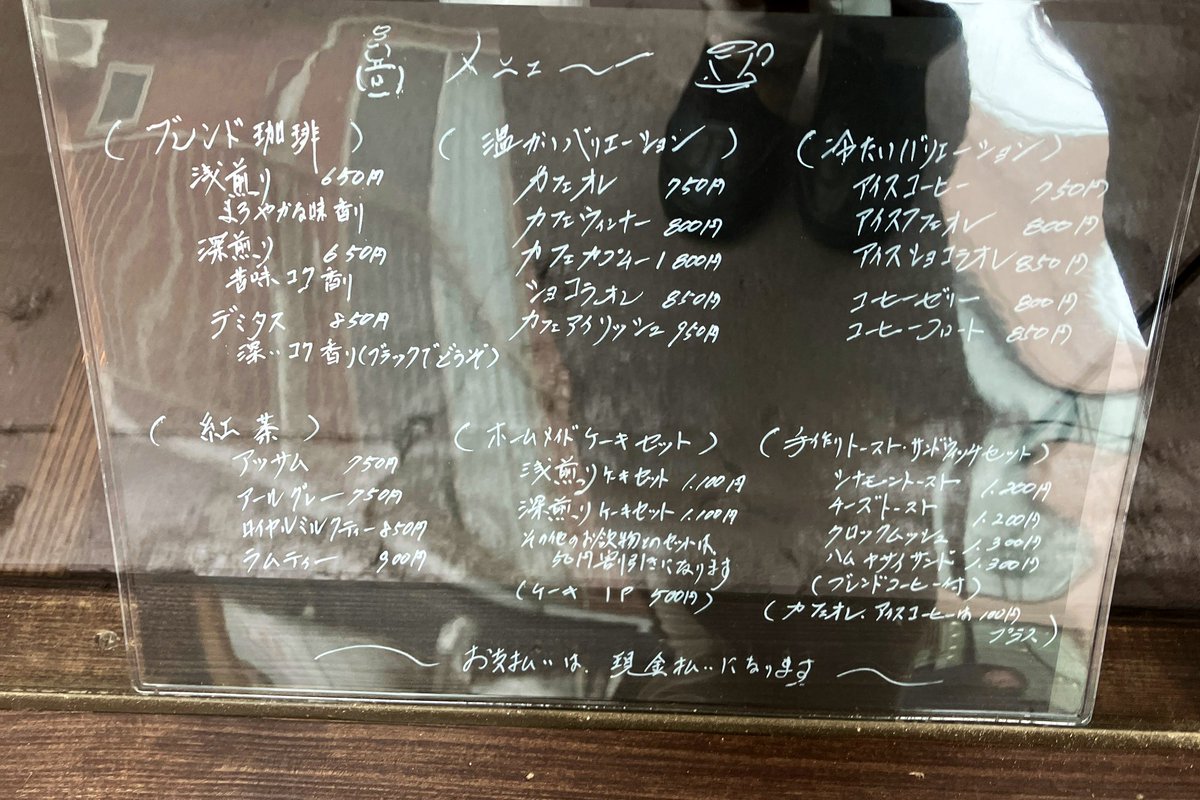 メニュー
(ブレンド珈琲)
浅煎り 650円
まろやかな味香り
深煎り 650円
苦味コク香り
デミタス 850円
深いコク香り(ブラックでどうぞ)
(温かいバリエーション)
カフェオレ 750円
カフェウィンナー 800円
カフェカプムー 800円
ショコラオレ 850円
カフェアイリッシュ 950円
(冷たいバリエーション)
アイスコーヒー 750円
アイスカフェオレ 800円
アイスショコラオレ 850円
コーヒーゼリー 800円
コーヒーフロート 850円
(紅茶)
アッサム 750円
アールグレー 750円
ロイヤルミルクティー 850円
ラムティー 900円
(ホームメイドケーキセット)
浅煎りケーキセット 1.100円
深煎りケーキセット 1.100円
その他のお飲物とのセットは、
50円割引きになります
(ケーキ 1P 500円)
(手作りトースト・サンドウィッチセット)
シナモントースト 1.200円
チーズトースト 1.200円
クロックムッシュ 1.300円
ハムヤサイサンド 1.300円
(ブレンドコーヒー付)
(カフェオレ・アイスコーヒーは100円
プラス)
お支払いは、現金払いになります